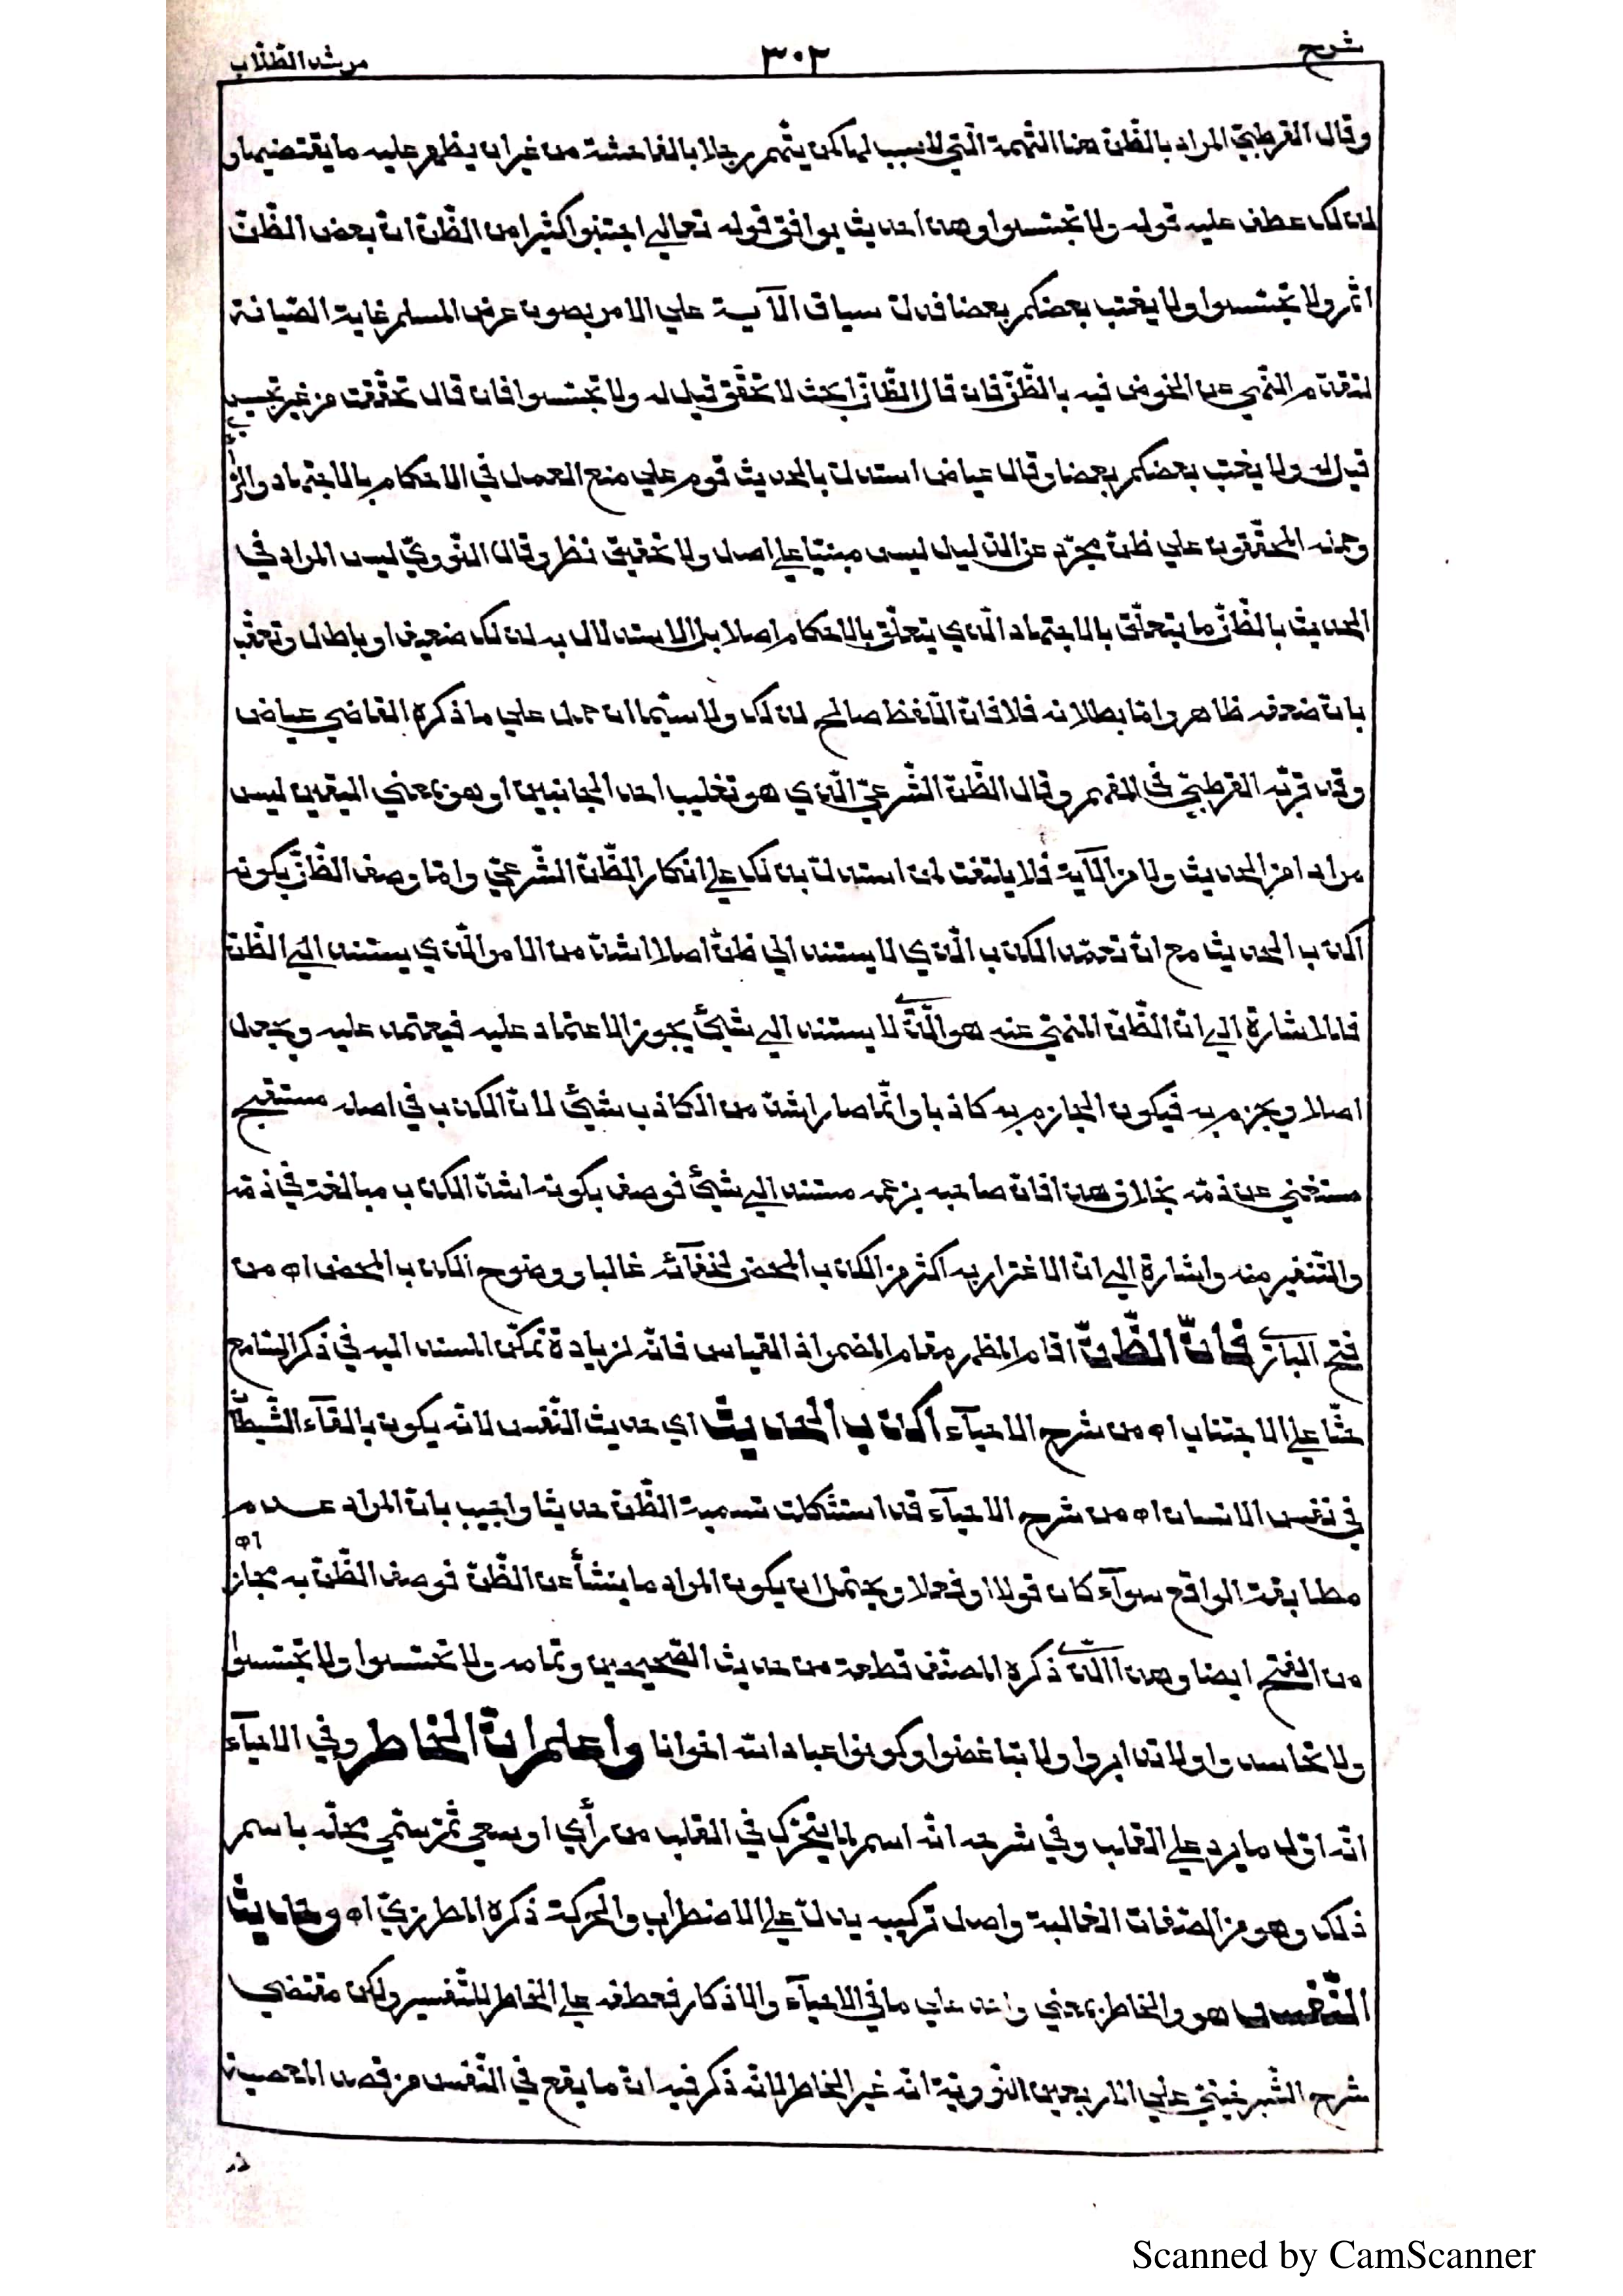 شرح ٣٠٢ مرشد الطلاب
وقال القرطبيّ المراد بالظّنّ هنا التّهمة الّتي لا سبب لها كمن يتّهم رجلا بالفاحشة من غير ان يظهر عليه ما يقتضيها و
لذلك عطف عليه قوله ولا تجسّسوا وهذا حديث يوافق قوله تعالي اجتنبوا كثيرا من الظّنّ انّ بعض الظّنّ
اثم ولا تجسّسوا ولا يغتب بعضكم بعضا فدلّ سياق الآية علي الامر بصون عرض المسلم غاية الصّيانة
لتقدّم النّهي عن الخوض فيه بالظّنّ فان قال الظّانّ ابحث لا تحقّق قيل له ولا تجسّسوا فان قال تحقّقت من غير تجسيس
قيل له ولا يغتب بعضكم بعضا وقال عياض استدلّ بالحديث قوم علي منع العمل في الاحكام بالاجتهاد والرّأي
وحمله المحقّقون علي ظنّ مجرّد عن الدّليل ليس مبنيّا علي اصل ولا تحقيق نظر وقال النّوويّ ليس المراد في
الحديث بالظّنّ ما يتعلّق بالاجتهاد الّذي يتعلّق بالاحكام اصلا بل الاستدلال به لذلك ضعيف او باطل وتعقّب
بانّ ضعفه ظاهر وامّا بطلانه فلا فانّ اللّفظ صالح لذلك ولا سيّما ان حمل علي ما ذكره القاضي عياض
وقد قرّبه القرطبيّ في المفهم وقال الظّنّ الشّرعيّ الّذي هو تغليب احد الجانبين او هو بمعني اليقين ليس
مرادا من الحديث ولا من الآية فلا يلتفت لمن استدلّ بذلك علي انكار الظّنّ الشّرعيّ وامّا وصف الظّنّ بكونه
اكذب الحديث مع انّ تعمّد الكذب الّذي لا يستند الي ظنّ اصلا اشدّ من الامر الّذي يستند الي الظّنّ
فللاشارة الي انّ الظّنّ المنهيّ عنه هو الّذي لا يستند الي شيئ يجوز الاعتماد عليه فيعتمد عليه ويجعل
اصلا ويجزم به فيكون الجازم به كاذبا وانّما صار اشدّ من الكاذب بشيئ لانّ الكذب في اصله مستقبح
مستغني عن ذمّه بخلاف هذا فانّ صاحبه بزعمه مستند الي شيئ فوصف بكونه اشدّ الكذب مبالغة في ذمّه
والتّنفير منه واشارة الي انّ الاغترار به اكثر من الكذب المحض لخفآئه غالبا ووضوح الكذب المحض اه من
فتح الباري فانّ الظّنّ اقام المظهر مقام المضمر اذ القياس فانّه لزيادة تمكّن المسند اليه في ذكر السّامع
حثّا علي الاجتناب اه من شرح الاحيآء اكذب الحديث اي حديث النّفس لانّه يكون بالقآء الشّيطان
في نفس الانسان اه من شرح الاحيآء قد استشكلت تسمية الظّنّ حديثا واجيب بانّ المراد عدم
مطابقة الواقع سوآء كان قولا او فعلا ويحتمل ان يكون المراد ما ينشأ عن الظّنّ فوصف الظّنّ به مجاز اه
من الفتح ايضا وهذا الّذي ذكره المصنّف قطعة من حديث الصّحيحين وتمامه ولا تحسّسوا ولا تجسّسوا
ولا تحاسدوا ولا تدابروا ولا تباغضوا وكونوا عباد الله اخوانا واعلم انّ الخاطر وفي الاحيآء
انّه اوّل ما يرد علي القلب وفي شرحه انّه اسم لما يتحرّك في القلب من رأي او سعي ثمّ سمّي محلّه باسم
ذلك وهو من الصّفات الغالبة واصل تركيبه يدلّ علي الاضطراب والحركة ذكره المطرزيّ اه وحديث
النّفس هو والخاطر بمعني واحد علي ما في الاحيآء والاذكار فعطفه علي الخاطر للتّفسير ولكن مقتضي
شرح الشّبرخيتيّ علي الاربعين النّوويّة انّه غير الخاطر لانّه ذكر فيه انّ ما يقع في النّفس من قصد المعصية
Scanned by CamScanner